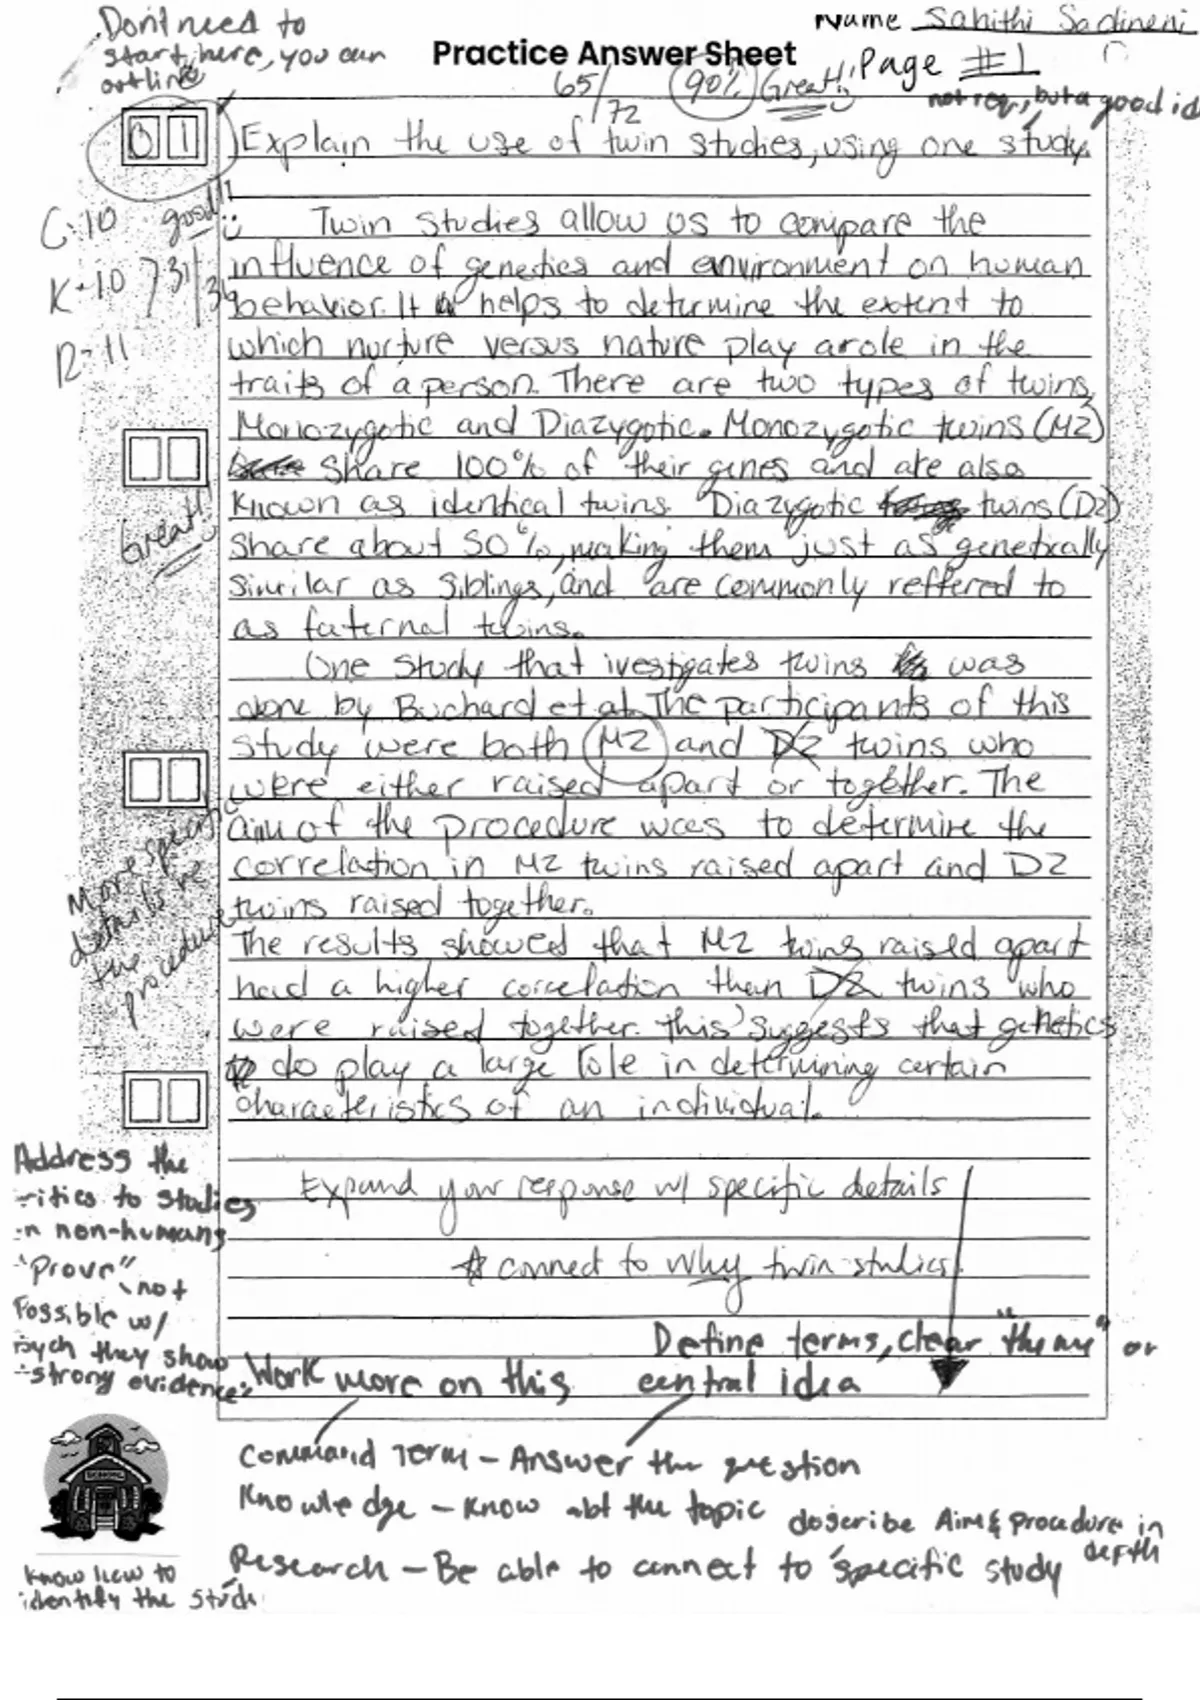 Don't need to
start here, you can
outline
Name Sahithi Sadineni
Practice Answer Sheet
Page #1
65/72
90% Great!!
not req, but a good id
01
Explain the use of twin studies, using one study.
C:10
good!!
K-10
31/34
R-11
Twin studies allow us to compare the
influence of genetics and environment on human
behavior. It helps to determine the extent to
which nurture versus nature play a role in the
traits of a person. There are two types of twins,
Monozygotic and Diazygotic. Monozygotic twins (MZ)
share 100% of their genes and are also
known as identical twins. Diazygotic twins (DZ)
Great!!
share about 50%, making them just as genetically
similar as siblings, and are commonly reffered to
as faternal twins.
One study that ivestigates twins was
done by Buchard et al. The participants of this
study were both MZ and DZ twins who
were either raised apart or together. The
aim of the procedure was to determine the
correlation in MZ twins raised apart and DZ
twins raised together.
More specific
details re
the
procedure
The results showed that MZ twins raised apart
had a higher correlation than DZ twins who
were raised together. This suggests that genetics
do play a large role in determining certain
characteristics of an individual.
Address the
-itics to studies
in non-humans
"Prove"
not
possible w/
psych they show
strong evidence
Expand your response w/ specific details
connect to why twin studies.
Define terms, clear "theme" or
central idea
Work more on this
SCHOOL
Command Term - Answer the question
Knowledge - Know abt the topic
describe Aim & Procedure in
depth
Research - Be able to connect to specific study
Know how to
identify the stude